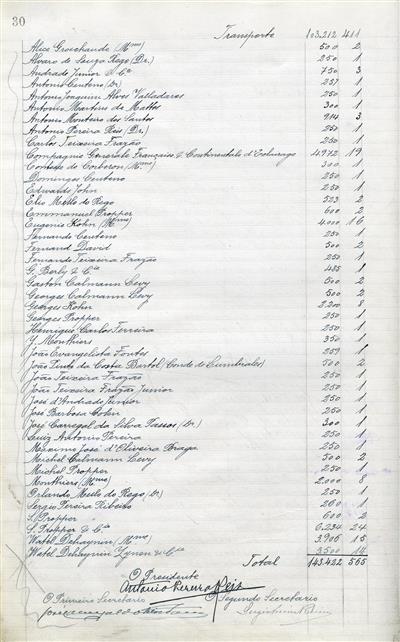 30
Transporte 103.212 411
Alice Groschaude (Mme) 500 2
Alvaro de Souza Rego (Dr.) 250 1
Andrade Junior & Ca 750 3
Antonio Centeno (Dr) 257 1
Antonio Joaquim Alves Valladares 250 1
Antonio Martins de Mattos 300 1
Antonio Monteiro dos Santos 914 3
Antonio Pereira Reis (Dr.) 250 1
Carlos Teixeira Frazão 250 1
Compagnie Generale Française & Continentale d'Eclairage 4.972 19
Comtesse de (Mme) 300 1
Domingos Centeno 250 1
Edwards John 250 1
Elio Mello do Rego 523 2
Emmanuel Propper 600 2
Eugenie Kohn (Mme) 4.000 16
Fernando Centeno 250 1
Fernand David 500 2
Fernando Teixeira Frazão 250 1
G. Berly & Ca 485 1
Gaston Calmann Levy 500 2
Georges Calmann Levy 500 2
Georges Kohn 2.200 8
Georges Propper 250 1
Henrique Carlos Ferreira 250 1
Y. Monthiers 350 1
João Evangelista Fontes 259 1
João Pinto da Costa Bartol (Conde de Cumbrales) 500 2
João Teixeira Frazão 250 1
João Teixeira Frazão Junior 250 1
José d'Andrade Junior 250 1
José Barbosa Colen 250 1
José Carregal da Silva Passos (Dr.) 300 1
Luiz Antonio Pereira 250 1
Maximo José d'Oliveira Braga 250 1
Michel Calmann Levy 500 2
Michel Propper 250 1
Monthiers (Mme) 2.000 8
Orlando Mello do Rego (Dr) 250 1
Sergio Pereira Ribeiro 260 1
S. Propper 600 2
S. Propper & Ca 6.234 24
Watel Dehaynin (Mme) 3.906 15
Watel Dehaynin & Ca 3.500 14
Total 143.422 565
O Presidente
Antonio Pereira Reis
O Primeiro Secretario O Segundo Secretario